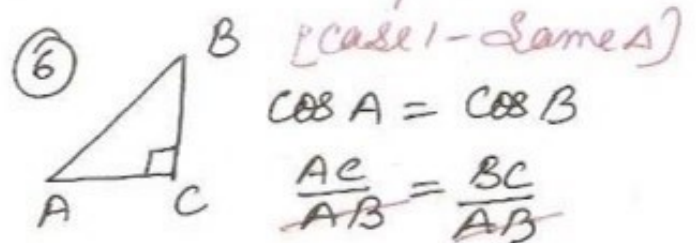 ⑥ B [Case 1 - Same Δ]
cos A = cos B
A C AC/AB = BC/AB